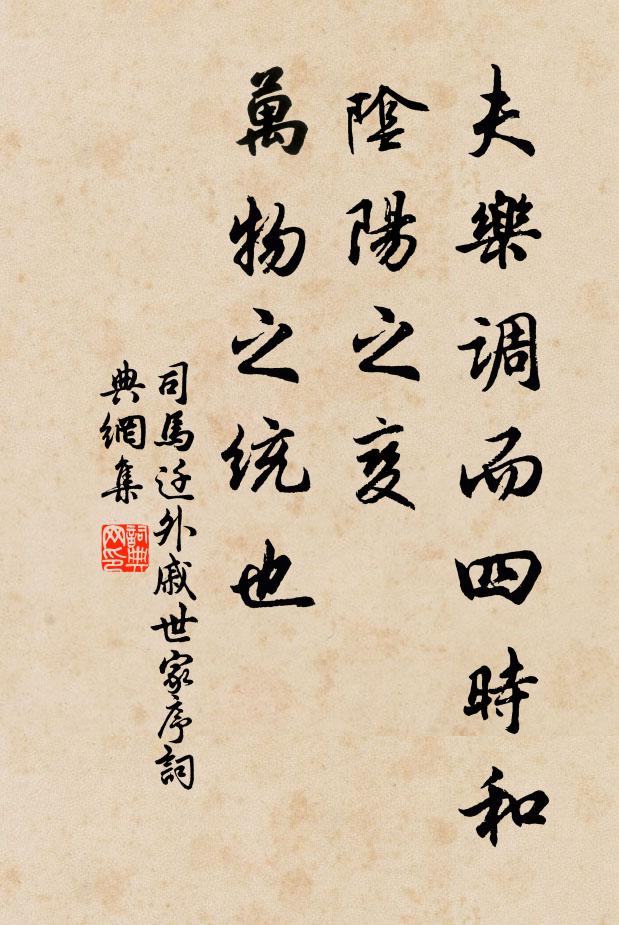 夫樂調而四時和
陰陽之變
萬物之統也
司馬迁外戚世家序詞
典網集
詞典
网印